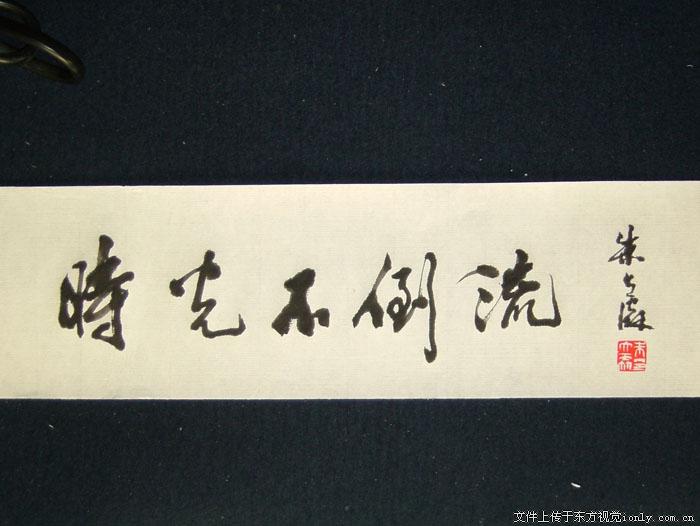 時光不倒流
朱
文件上传于东方视觉ionly.com.cn